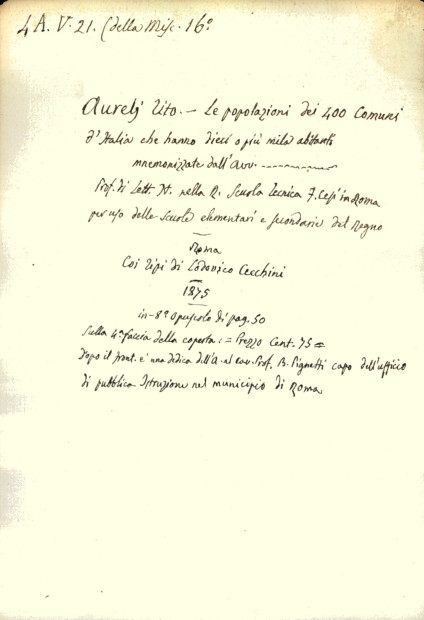 4 A. V. 21. (della Misc. 16ª
Aurelj Tito. — Le popolazioni dei 400 Comuni
d'Italia che hanno dieci o più mila abitanti
mnemonizzate dall'Avv. ------------
Prof. di Lett. It. nella R. Scuola tecnica F. Cesi in Roma
per uso delle scuole elementari e secondarie del Regno
Roma
Coi tipi di Lodovico Cecchini
1875
in-8º opuscolo di pag. 50
Sulla 4ª faccia della coperta: = Prezzo Cent. 75 =
Dopo il front. e' una dedica dell'A. al cav. Prof. B. Pignetti capo dell'ufficio
di pubblica Istruzione nel municipio di Roma